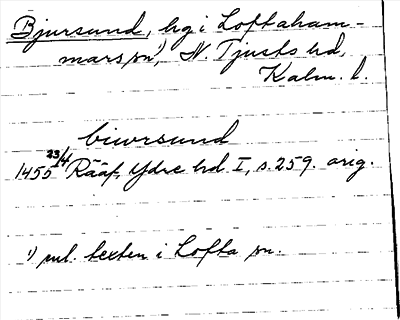 Bjursund, hg i Loftaham-
mars sn¹⁾, N. Tjusts hd,
Kalm. l.
biwrsund
1455 23/4 Rääf, Ydre hd. I, s. 259. orig.
¹⁾ enl. texten i Lofta sn.